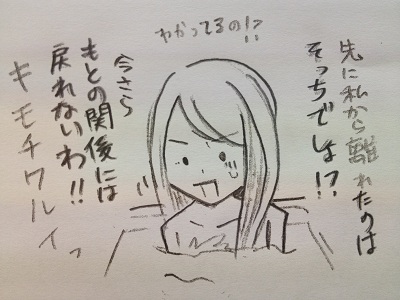 先に私から離れたのは
そっちでしょ!?
わかってるの!?
今さら
もとの関後には
戻れないわ!!
キモチワルイっ